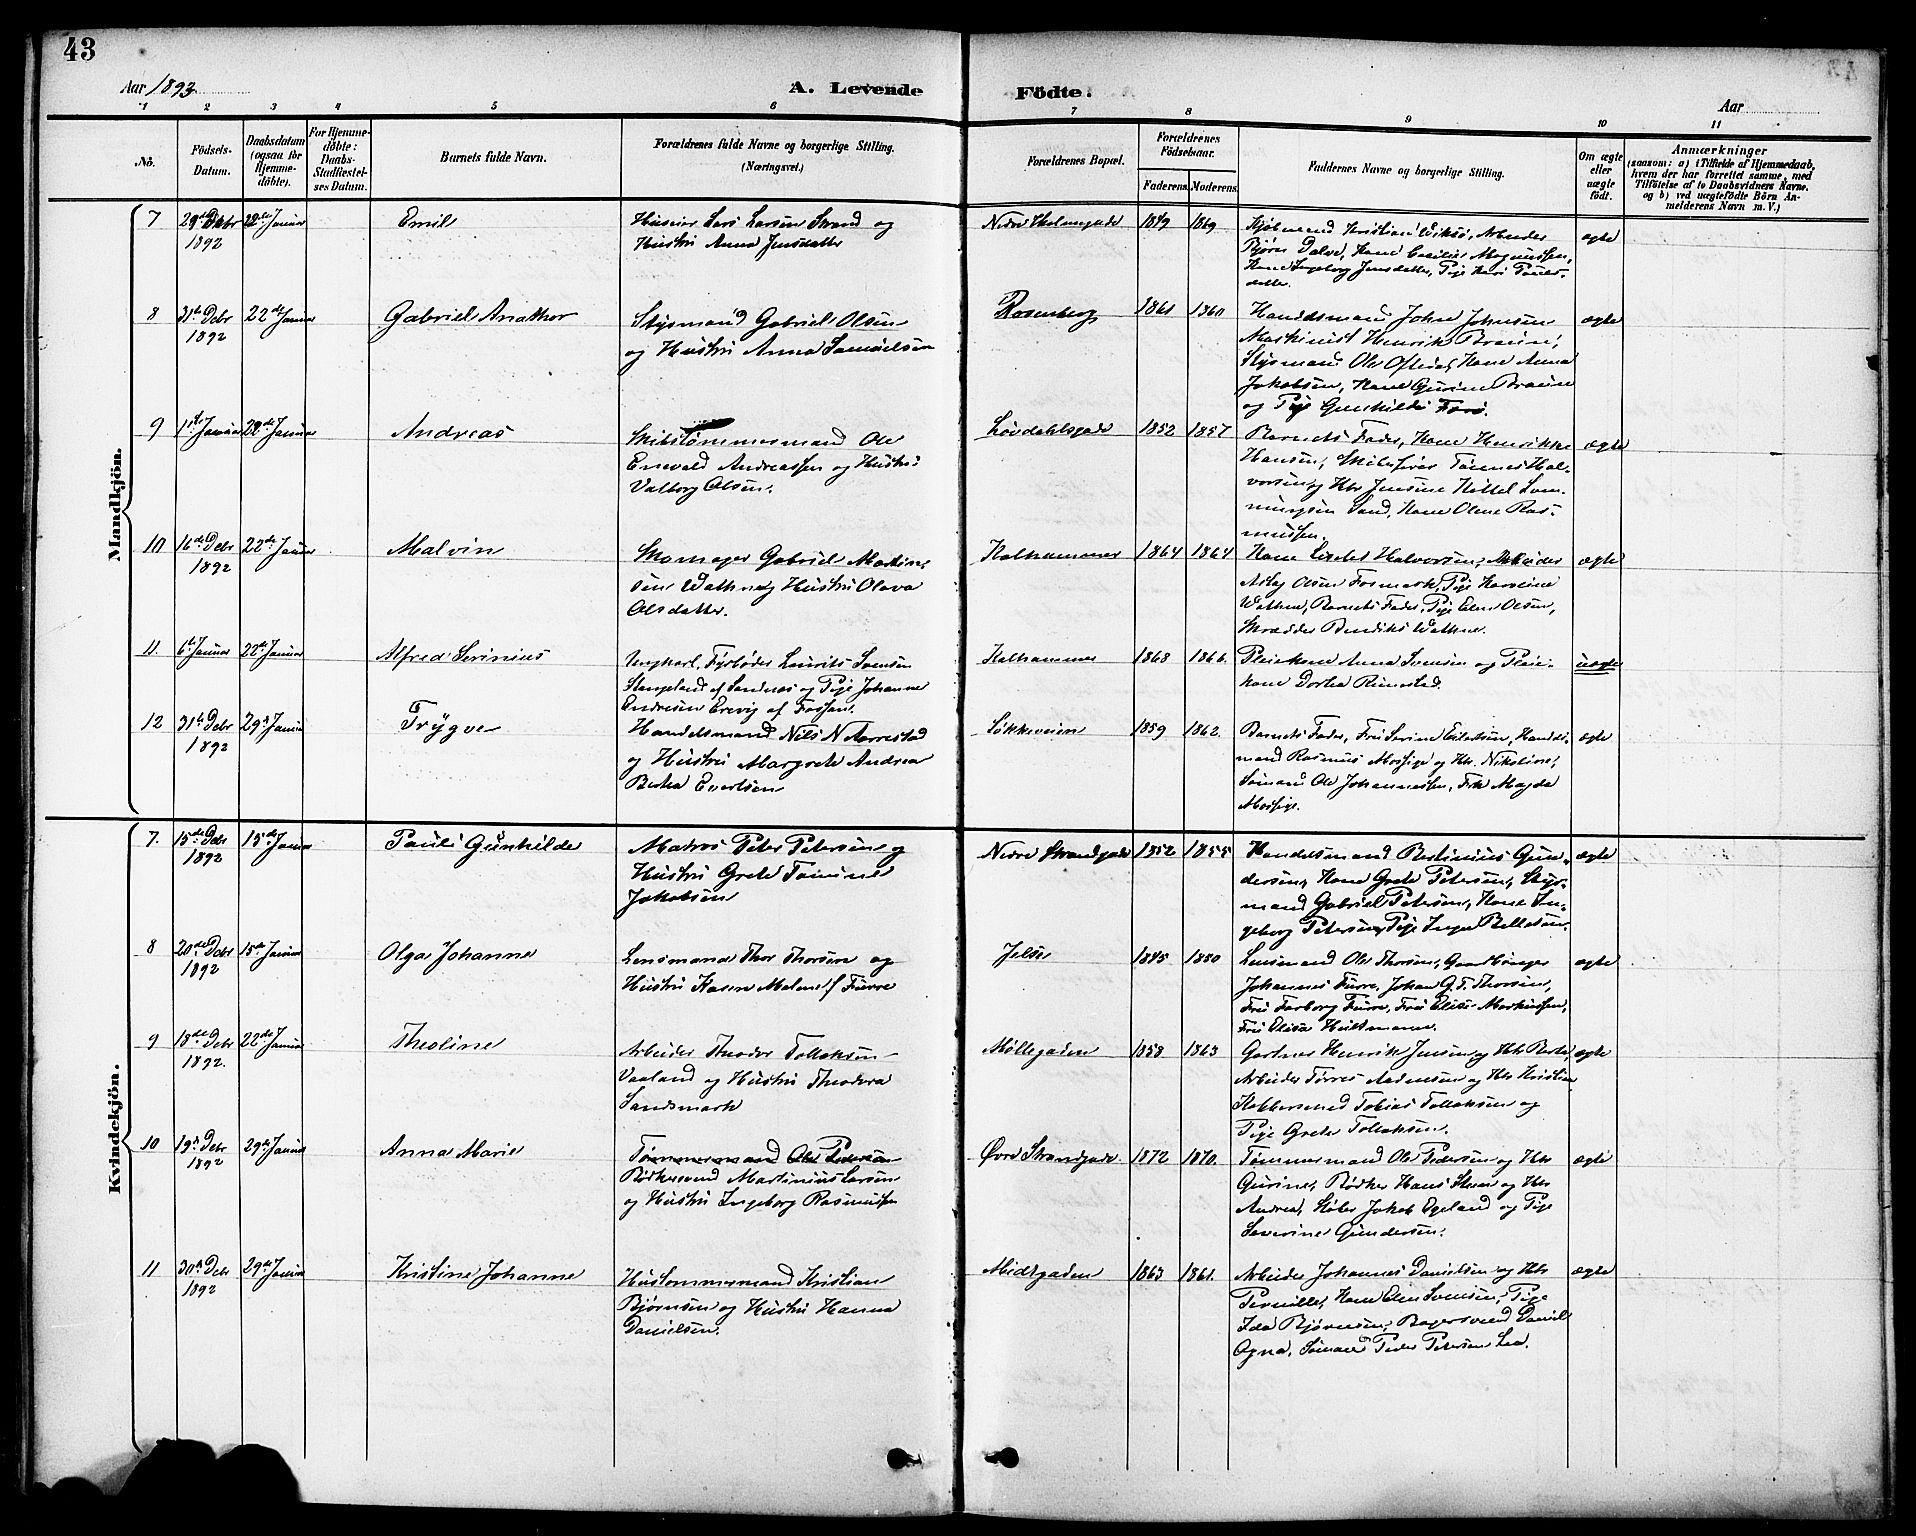 43
Aar 1893
A. Levende Födte.
Aar
1 2 3 4 5 6 7 8 9 10 11
No.
Födsels-Datum.
Daabsdatum (ogsaa for Hjemme-döbte).
For Hjemme-döbte: Daabs-Stadfæstel-ses Datum.
Barnets fulde Navn.
Forældrenes fulde Navne og borgerlige Stilling. (Næringsvei.)
Forældrenes Bopæl.
Forældrenes Födselsaar.
Faderens. Moderens.
Faddernes Navne og borgerlige Stilling.
Om ægte eller uægte födt.
Anmærkninger
(saasom: a) i Tilfælde af Hjemmedaab,
hvem der har forrettet samme, med
Tilföielse af to Daabsvidners Navne.
og b) ved uægtefödte Börn An-
melderens Navn m. V.)
Mandkjön.
7 29de Debr 1892 22de Januar Emil
Huseier Lars Larsen Strand og
Hustru Anna Jensdatter
Nedre Holmegade 1849 1869
Kjøbmand Kristian Viksø, Arbeider
Bjørn Dalve, Kone Cecilie Magnussen,
Kone Ingeborg Jensdatter, Pige Kari Pauls-
datter.
ægte
8 31te Debr 1892 22de Januar Gabriel Anathor
Styrmand Gabriel Olsen
og Hustru Anna Samuelsen
Rosenberg 1861 1860
Handelsmand John Johnsen
Maskinist Henrik Braune,
Styrmand Ole Oftedal, Kone Anna
Jakobsen, Kone Gurine Braune
og Pige Gunhilde
ægte
9 1ste Januar 22de Januar Andreas
Skibstømmermand Ole
Enevald Andreassen og Hustru
Valborg Olsen.
Løvdahlsgade 1852 1857
Barnets Fader, Kone Henrikke
Hansen, Skibsfører Tønnes Hal-
vorsen og Htr Jensine Kittel
Sand, Kone Olene Ras-
mussen.
ægte
10 16de Debr 1892 22de Januar Malvin
Skomager Gabriel Martin
sen Wathne og Hustru Olava
Olsdatter.
Kalhammer 1864 1864
Kone Lisabet Halvorsen, Arbeider
Aslag Olsen Fosmark, Pige Karoline
Wathne, Barnets Fader, Pige Elen Olsen,
Skrædder Bendik Wathne.
ægte
11. 6te Januar 22de Januar Alfred Serinius
Ungkarl, Fyrbøder Laurits Svendsen
Stangeland af Sandnæs og Pige Johanne
Andresen Erevig af Fossan.
Kalhammer 1868 1866.
Pleiekone Anna Svensen og Pleie-
kone Dorthea Rimestad.
uægte
12 31te Debr 1892 29de Januar Trygve
Handelsmand Nils N Aarrestad
og Hustru Margrete Andrea
Bertha Evertsen
Løkkeveien 1859 1862.
Barnets Fader, Fru Serine Eilertsen, Handels-
mand Rasmus Mossige og Htr. Nikoline,
Sømand Ole Johannessen, Frk Magda
Mossige.
ægte
Kvindekjön.
7. 15de Debr 1892 15de Januar Pauli Gunhilde
Matros Peter Petersen og
Hustru Grete Tomine
Jakobsen
Nedre Strandgade 1852 1855
Handelsmand Bertinius Gun-
dersen, Kone Grete Petersen, Styr-
mand Gabriel Petersen, Kone In-
geborg Petersen, Pige Inga Bellesen.
ægte
8 20de Debr 1892 15de Januar Olga Johanne
Lensmand Thor Thorsen og
Hustru Karen Malene f Furre
Jelse 1845 1850
Lensmand Ole Thorsen, Gaardbruger
Johannes Furre, Johan G. T. Thorsen,
Fru Farborg Furre, Fru Elise Markussen,
Fru Elisa Hultmann.
ægte
9 18de Debr 1892. 22de Januar Theoline
Arbeider Theodor Tollaksen
Vaaland og Hustru Theodora
Sandsmark
Møllegaden 1858 1863
Gartner Henrik Jensen og Htr Berta,
Arbeider Tørres Aadnesen og Htr Kristine
Kobbersmed Tobias Tollaksen og
Pige Grete Tollaksen.
ægte
10 19de Debr 1892 29de Januar Anna Marie
Tømmermand Ole Pedersen
Bødkersvend Martinius Larsen
og Hustru Ingeborg Rasmussen
Øvre Strandgade 1872 1870.
Tømmermand Ole Pedersen og Htr
Gurine, Bødker Hans Steen og Htr
Andrea, Støber Jakob Egeland og Pige
Severine Gundersen.
ægte
11 30te Debr 1892 29de Januar Kristine Johanne
Hustømmermand Kristian
Bjørnsen og Hustru Hanna
Danielsen.
Midtgaden 1863 1861.
Arbeider Johannes Danielsen og Htr
Pernille, Kone Elen Svensen, Pige
Ida Bjørnsen, Bagersvend Daniel
Ogna, Sømand Peder Petersen Lea.
ægte